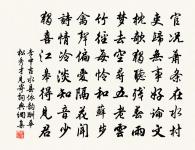 官况蕭条在水村
吏歸無事好論文
枕欹獨聽殘春雨
夢去空尋五老雲
竹徑每憐和蘚步
禽聲偏愛隔花聞
詩情冷淡知音少
獨喜江皋得見君
李中吉水縣依韻酬華
松秀才見寄